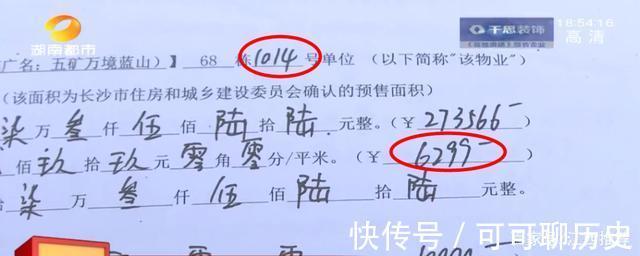 湖南都市
千思装饰
18:54:16
高清
广名：五矿万境蓝山）】 68 栋 1014 号单位 （以下简称"该物业"）
（该面积为长沙市住房和城乡建设委员会确认的预售面积）
柒 万 叁 仟 伍 佰 陆 拾 陆 元整。（¥ 273566一 ）
佰 玖 拾 玖 元 零 角 零 分/平米。（¥ 6299一 ）
拾 柒 万 叁 仟 伍 佰 陆 拾 陆 元整。
快传号/可可聊历史